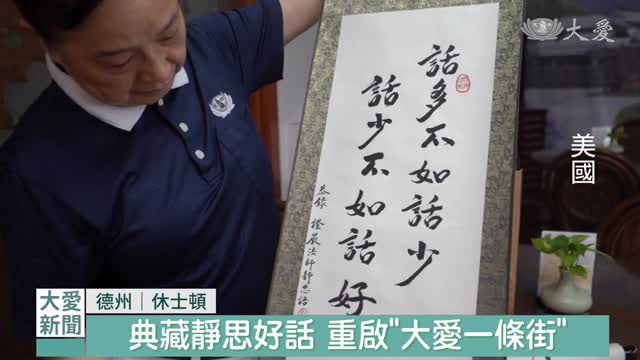 大愛
話多不如話少
話少不如話好
恭錄 證嚴法師靜思語
美國
大愛
新聞
德州｜休士頓
典藏靜思好話 重啟"大愛一條街"